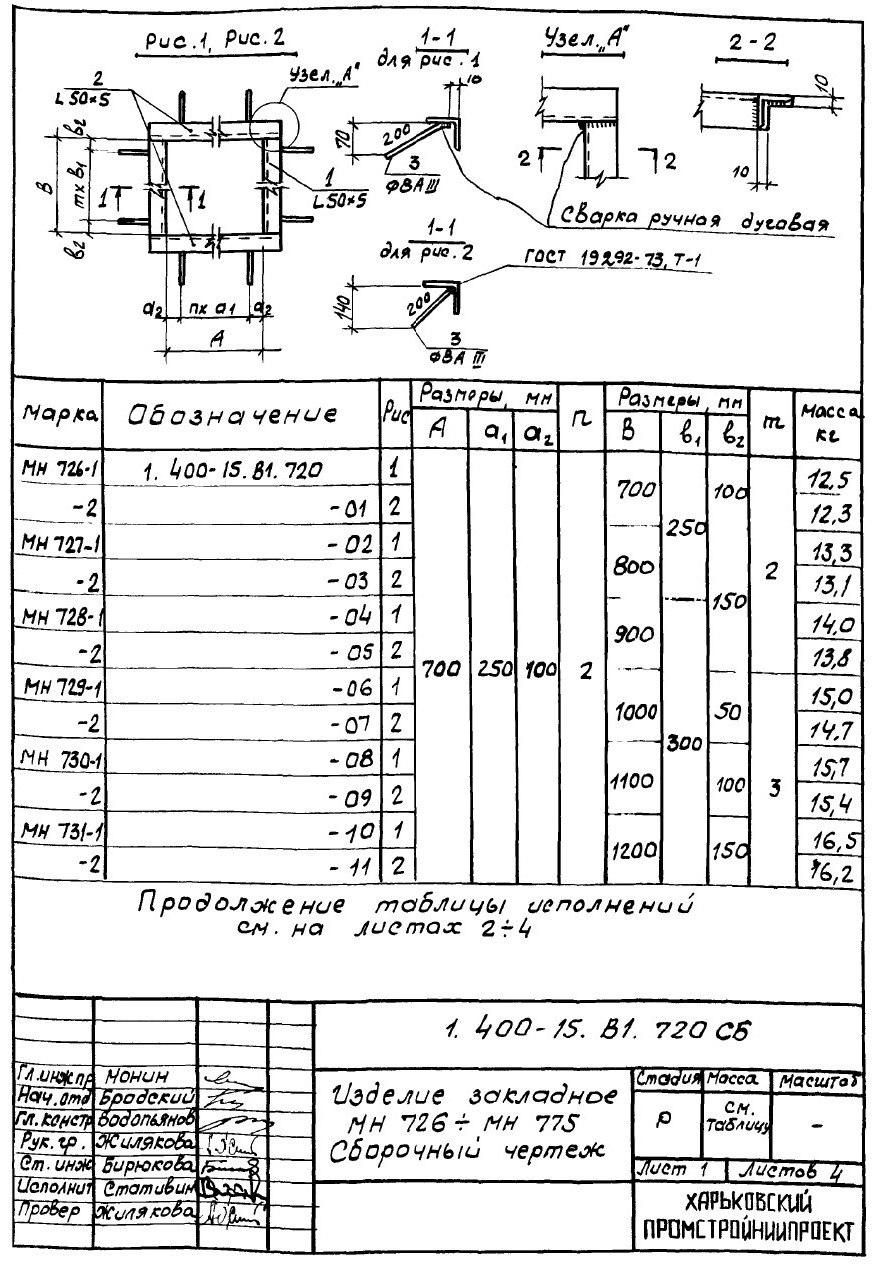 Рис.1, Рис.2
1-1
для рис.1
Узел „А"
2-2
2
L 50×5
Узел „А"
в2
В
m× в1
в2
1 1
1
L50×5
а2 n× а1 а2
А
10
70
200
3
Ф8АIII
1-1
для рис.2
140
200
3
Ф8АIII
2 2
10
10
Сварка ручная дуговая
ГОСТ 19292-73, Т-1
Марка Обозначение Рис Размеры, мм n Размеры, мм m Масса кг
А а1 а2 В в1 в2
МН 726-1 1.400-15.В1.720 1 700 250 100 2 700 250 100 2 12,5
-2 -01 2 12,3
МН 727-1 -02 1 800 150 13,3
-2 -03 2 13,1
МН 728-1 -04 1 900 300 14,0
-2 -05 2 13,8
МН 729-1 -06 1 1000 50 3 15,0
-2 -07 2 14,7
МН 730-1 -08 1 1100 100 15,7
-2 -09 2 15,4
МН 731-1 -10 1 1200 150 16,5
-2 -11 2 16,2
Продолжение таблицы исполнений
см. на листах 2÷4
1.400-15.В1.720 СБ
Гл.инж.пр Монин
Нач.отд Бродский
Гл.констр Водопьянов
Рук.гр. Жилякова
Ст.инж Бирюкова
Исполнит Стативин
Провер Жилякова
Изделие закладное
МН 726÷МН 775
Сборочный чертеж
Стадия Масса Масштаб
Р см. таблицу -
Лист 1 Листов 4
ХАРЬКОВСКИЙ
ПРОМСТРОЙНИИПРОЕКТ